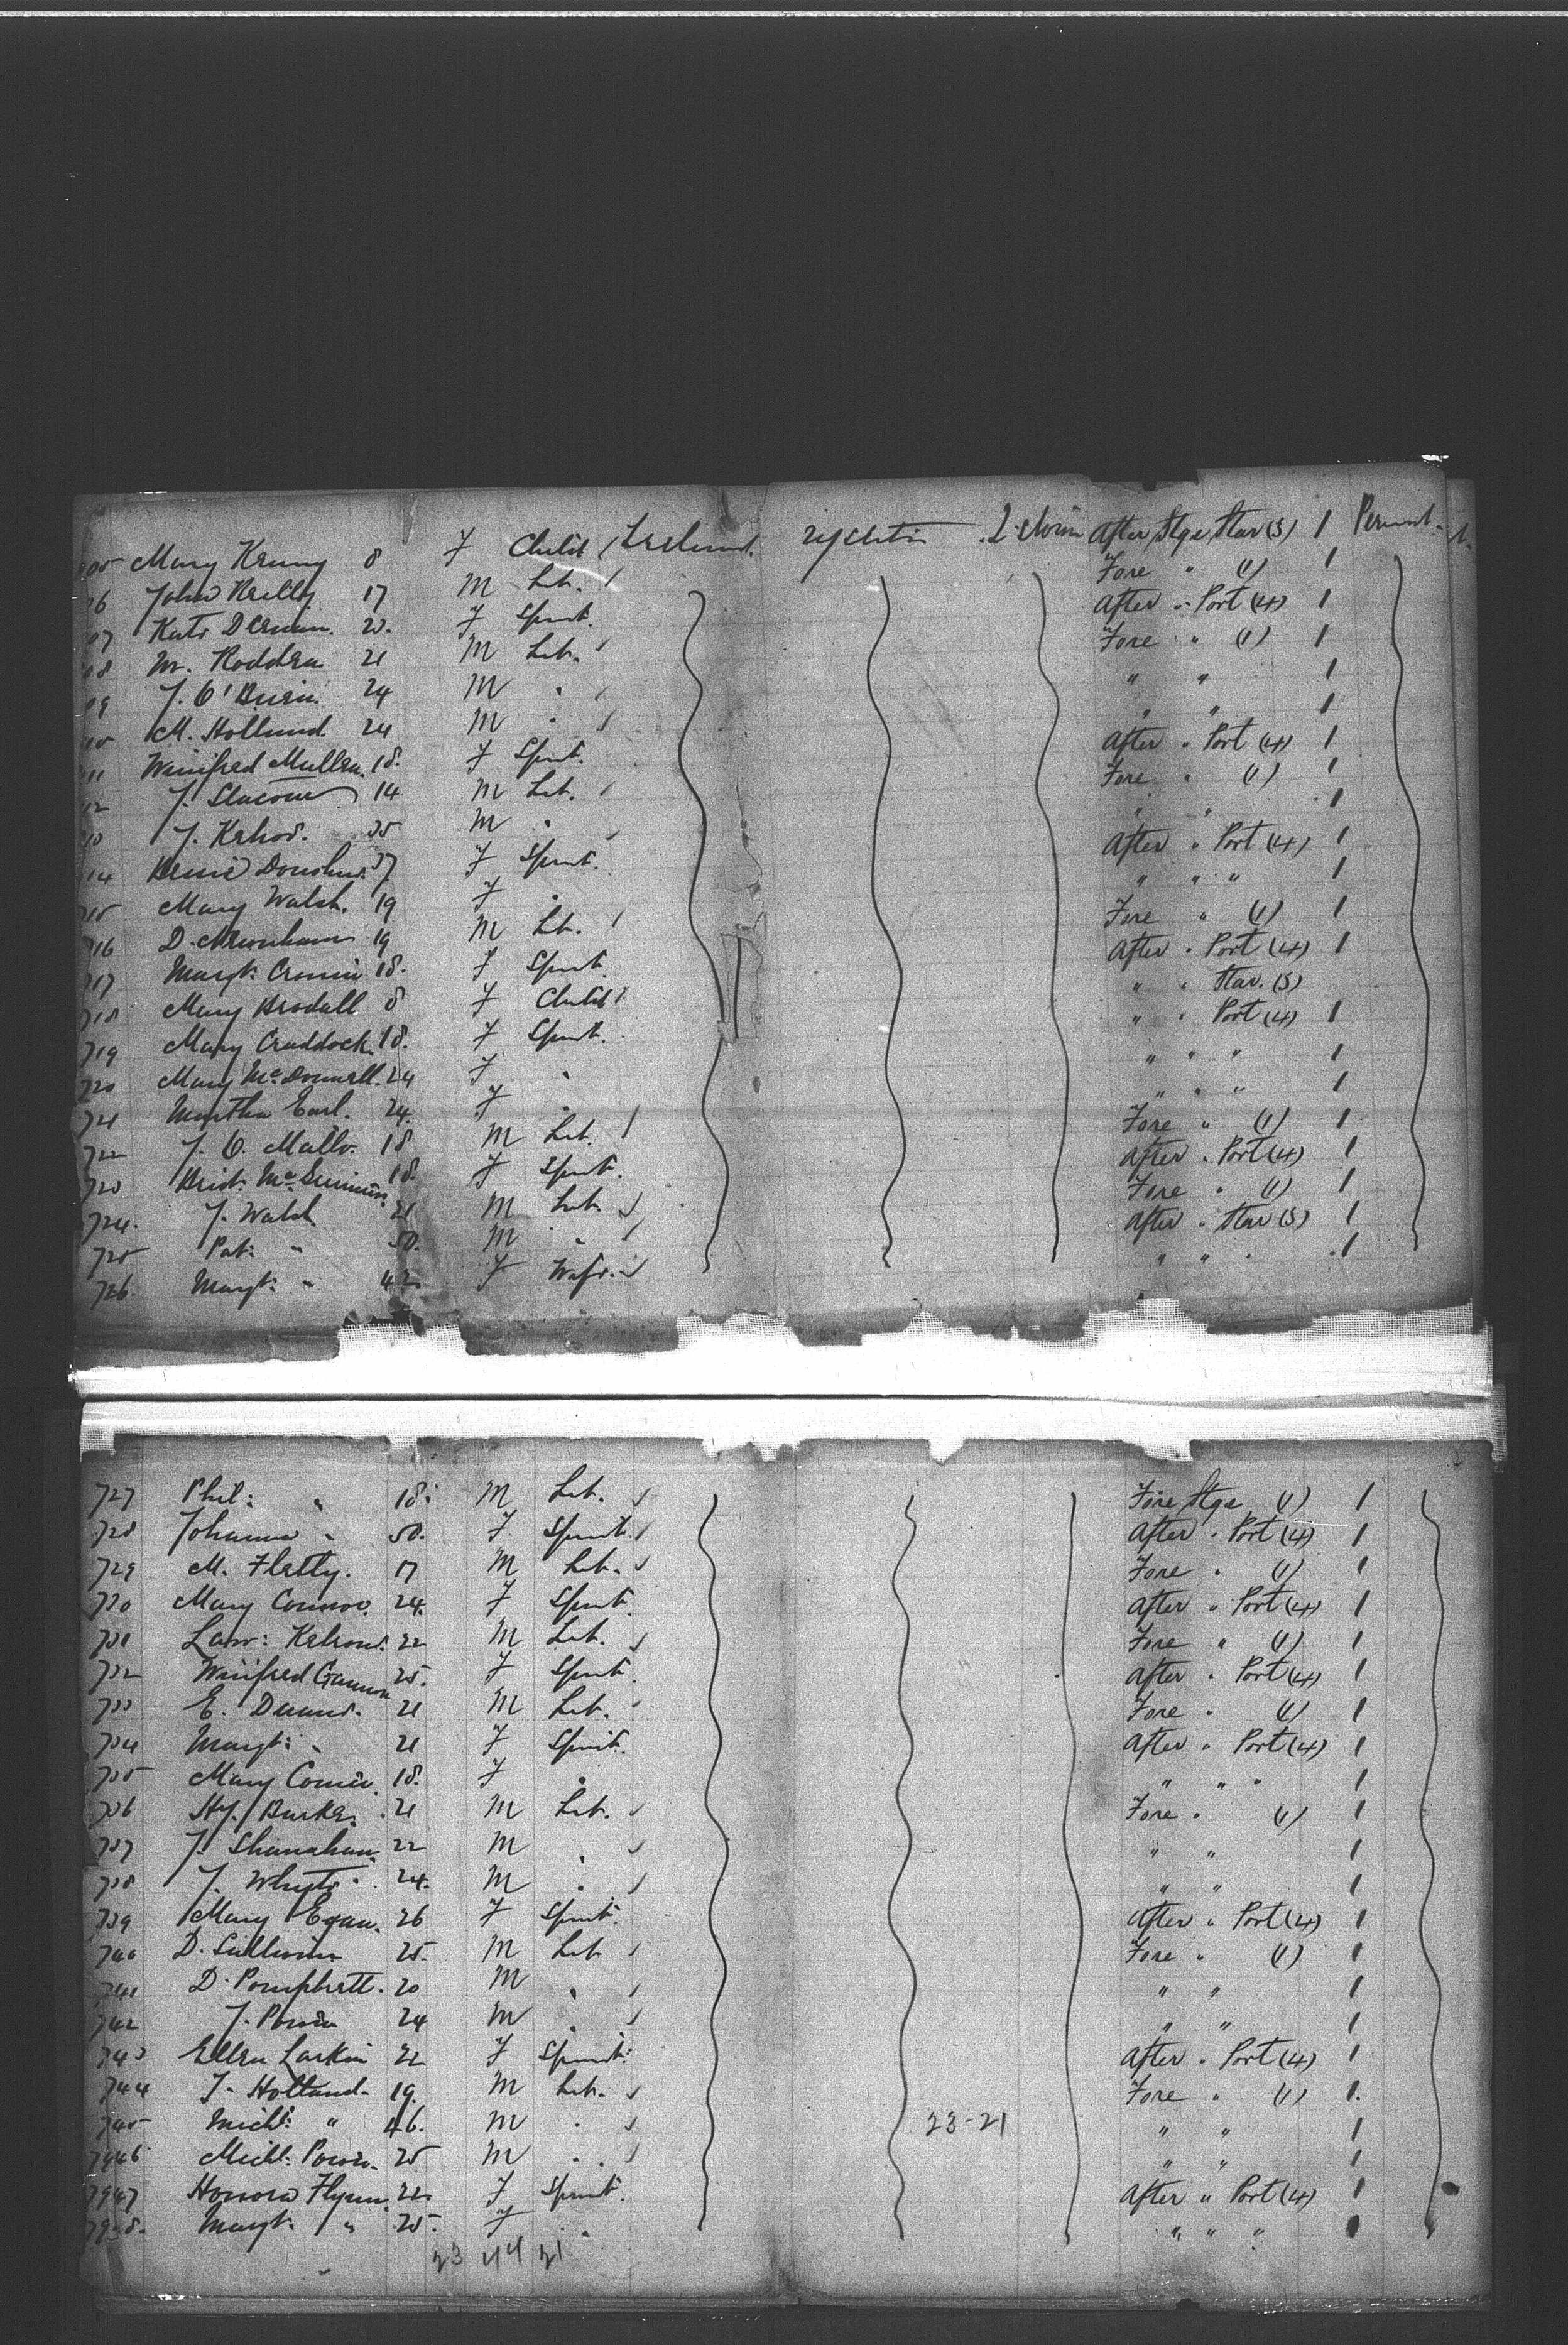 05 Mary Kenny 8 F Child Ireland. After Stge Star (3) 1 Permnt.
06 John Reilly 17 M Lab. Fore " (1) 1
07 Kate 20. F Spnst. After " Port (4) 1
08 M. Rodden 21 M Lab. Fore " (1) 1
09 J. O'Brien 24 M " " " 1
10 M. Holland 24 M " " " 1
11 Winifred Mullen. 18. F Spnst. After " Port (4) 1
12 J. 14 M Lab. Fore " (1) 1
13 J. Kehoe. 35 M " " " 1
14 37 F Spnst. After " Port (4) 1
715 Mary Walsh. 19 F " " " " 1
716 D. 19 M Lab. Fore " (1) 1
717 Margt. Cronin 18. F Spnst. After " Port (4) 1
718 Mary 8 F Child " " Star. (3)
719 Mary Craddock. 18. F Spnst. " " Port (4) 1
720 Mary McDonnell. 24 F " " " " 1
721 Martha Earl. 24. F " " " " 1
722 J. O. 18 M Lab. Fore " (1) 1
723 Brid. 18. F Spnst. After " Port (4) 1
724. J. Walsh 21 M Lab. Fore " (1) 1
725 Pat: " 50. M " After " Star (3) 1
726. Margt: " 42 F Wife. " " " 1
727 Phil: " 18: M Lab. Fore Stge (1) 1
728 Johanna " 50. F Spnst. After " Port (4) 1
729 M. Flatly. 17 M Lab. Fore " (1) 1
730 Mary Connor. 24. F Spnst. After " Port (4) 1
731 Law: 22 M Lab. Fore " (1) 1
732 Winifred Gannon 25. F Spnst. After " Port (4) 1
733 E. 21 M Lab. Fore " (1) 1
734 Margt: " 21 F Spnst. After " Port (4) 1
735 Mary 18. F " " " " 1
736 Hy. Burke. 21 M Lab. Fore " (1) 1
737 J. Shanahan. 22 M " " " 1
738 J. Whyte. 24. M " " " 1
739 Mary Egan. 26 F Spnst. After " Port (4) 1
740 D. Sullivan 25. M Lab Fore " (1) 1
741 D. Pomphrett. 20 M " " " 1
742 J. Power 24 M " " " 1
743 Ellen Larkin 22 F Spnst: After " Port (4) 1
744 J. Holland. 19. M Lab. Fore " (1) 1.
745 Michl: " 46. M " 23-21 " " 1
7946 Michl: Power. 25 M " " " 1
7947 Honora Flynn. 22. F Spnst. After " Port (4) 1
Margt. " 25. F " " " " 1
23 44 21